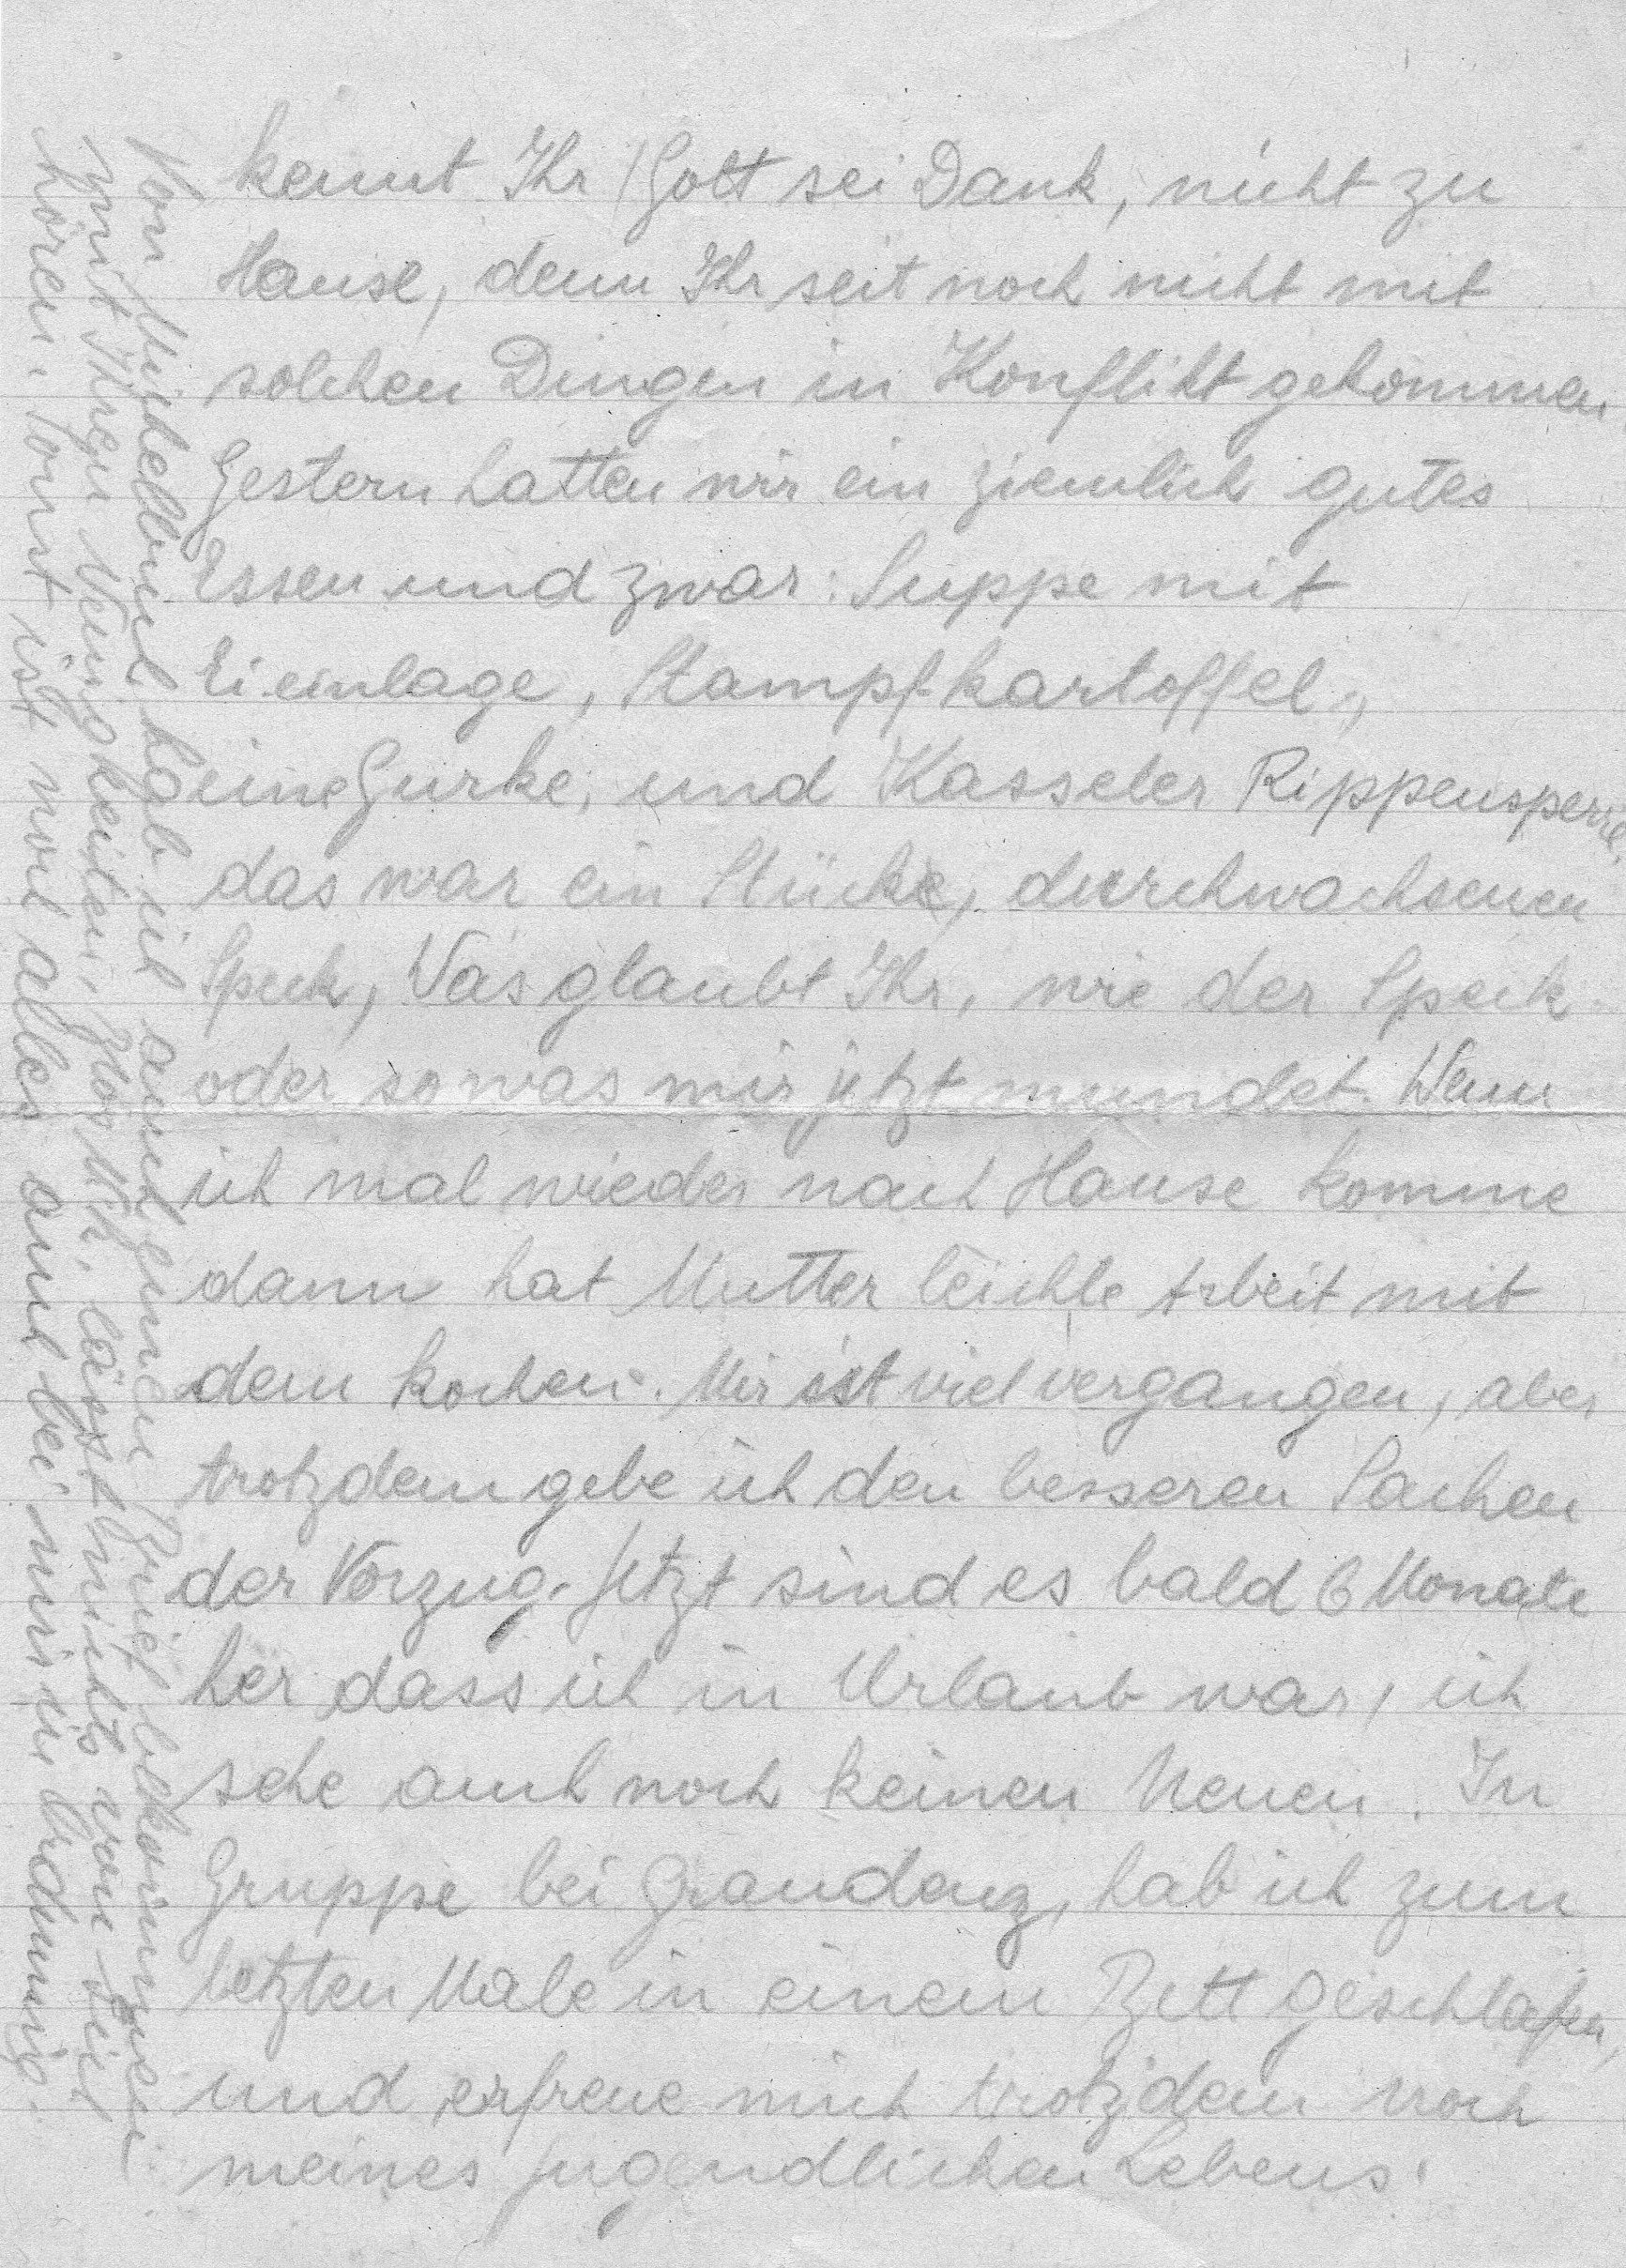 kennt Ihr Gott sei Dank, nicht zu
Hause, denn Ihr seit noch nicht mit
solchen Dingen in Konflikt gekommen.
Gestern hatten wir ein ziemlich gutes
Essen und zwar: Suppe mit
Ei.einlage, Stampf-kartoffel,
eine Gurke, und Kasseler Rippensperre,
das war ein Stücke, durchwachsenen
Speck, Was glaubt Ihr, wie der Speck
oder sowas mir jetzt mundet. Wenn
ich mal wieder nach Hause komme
dann hat Mutter leichte Arbeit mit
dem kochen. Mir ist viel vergangen, aber
trotzdem gebe ich den besseren Sachen
der Vorzug. Jetzt sind es bald 6 Monate
her dass ich in Urlaub war, ich
sehe auch noch keinen Neuen. In
Gruppe bei Graudenz, hab ich zum
letzten Male in einem Bett geschlafen,
und erfreue mich trotzdem noch
meines jugendlichen Lebens.
Von hab ich auch einen Brief bekommen
mit Ihren Neuigkeiten. lässt nichts von sich
hören. Sonst ist noch alles auch bei mir in Ordnung.